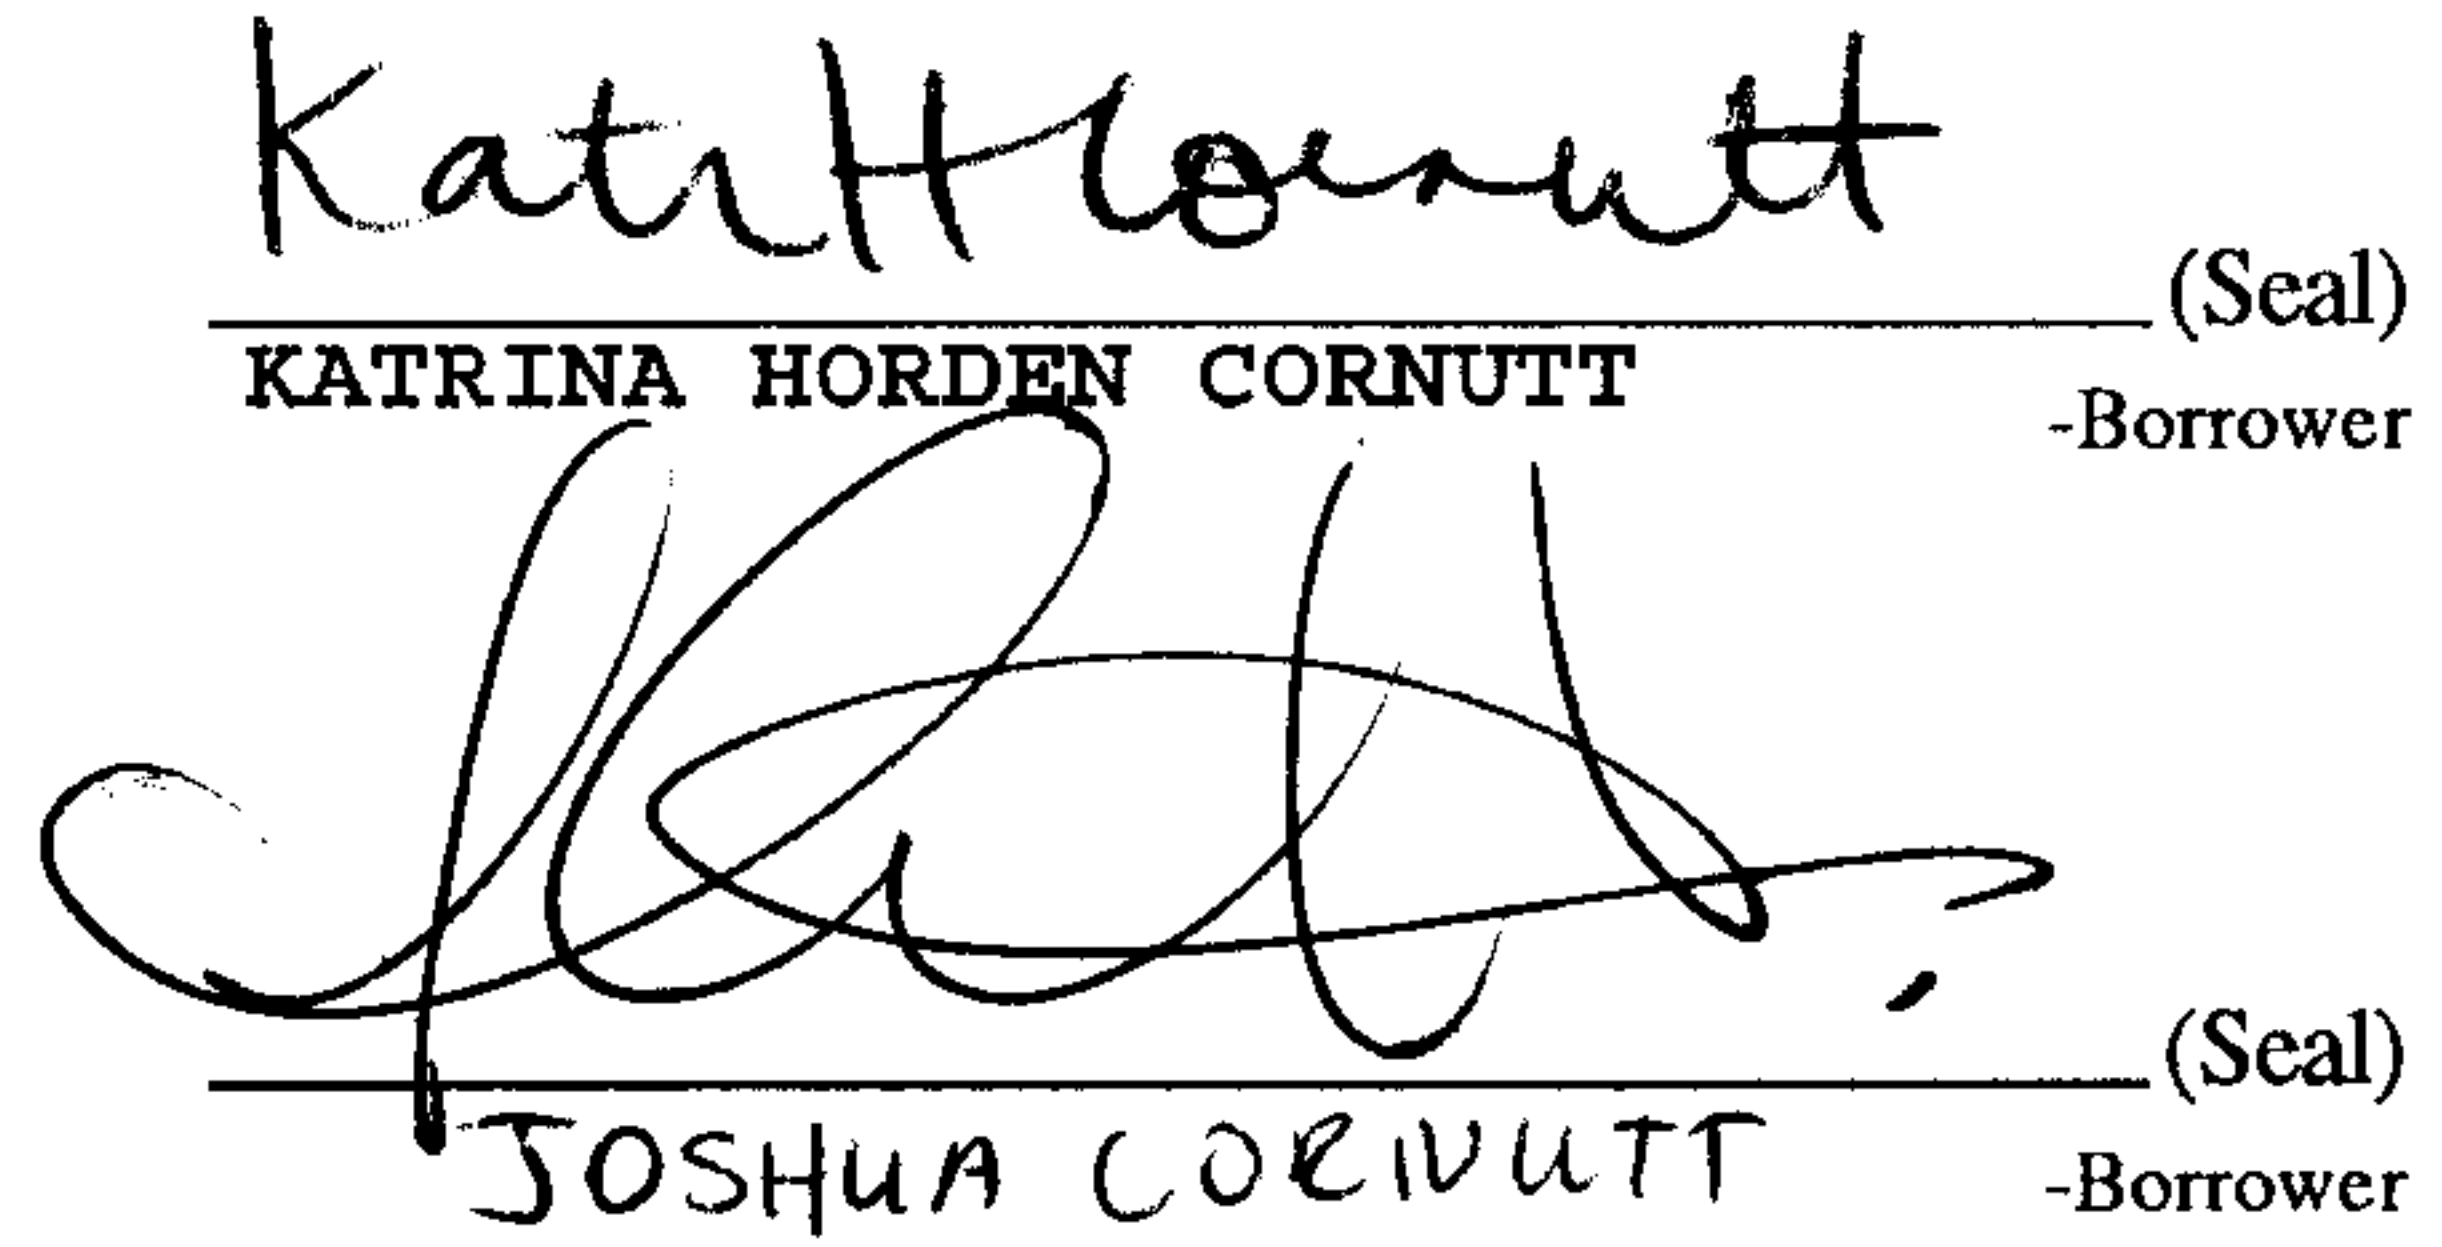 Kati H Cornutt
(Seal)
KATRINA HORDEN CORNUTT
-Borrower
(Seal)
JOSHUA CORNUTT
-Borrower